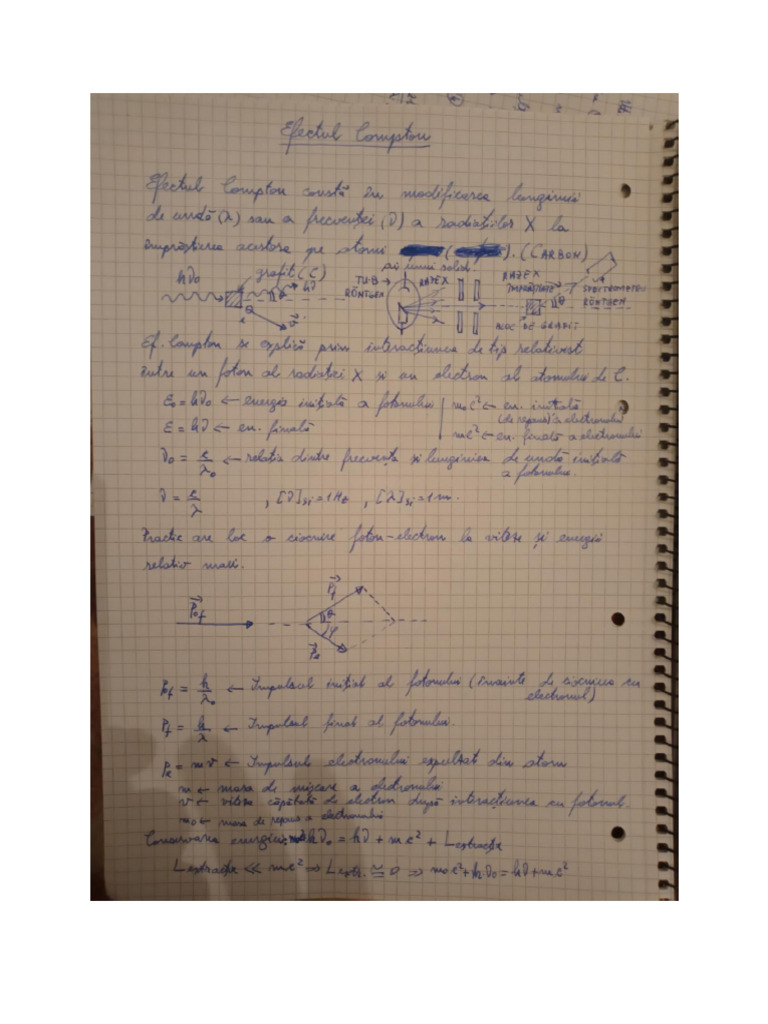 Efectul Compton
Efectul Compton constă în modificarea lungimii
de undă (λ) sau a frecvenței (ν) a radiațiilor X la
împrăștierea acestora pe atomii ( ). (CARBON)
ai unui solid.
hν₀ grafit (C) hν θ φ v⃗
TUB RÖNTGEN RAZE X
RAZE X ÎMPRĂȘTIATE θ SPECTROMETRU RÖNTGEN
BLOC DE GRAFIT
Ef. Compton se explică prin interacțiunea de tip relativist
între un foton al radiației X și un electron al atomului de C.
E₀ = hν₀ ← energia inițială a fotonului | m₀c² ← en. inițială
(de repaus) a electronului
E = hν ← en. finală | mc² ← en. finală a electronului
ν₀ = c/λ₀ ← relația dintre frecvența și lungimea de undă inițială
a fotonului.
ν = c/λ , [ν]SI = 1Hz , [λ]SI = 1m.
Practic are loc o ciocnire foton-electron la viteze și energii
relativ mari.
p⃗₀f p⃗f θ φ p⃗e
p₀f = h/λ₀ ← Impulsul inițial al fotonului (înainte de ciocnirea cu
electronul)
pf = h/λ ← Impulsul final al fotonului.
pe = mv ← Impulsul electronului expulzat din atom
m ← masa de mișcare a electronului
v ← viteza căpătată de electron după interacțiunea cu fotonul.
m₀ ← masa de repaus a electronului
Conservarea energiei: hν₀ = hν + mc² + Lextracție
Lextracție ≪ mc² ⇒ Lextr. ≅ 0 ⇒ m₀c² + hν₀ = hν + mc²